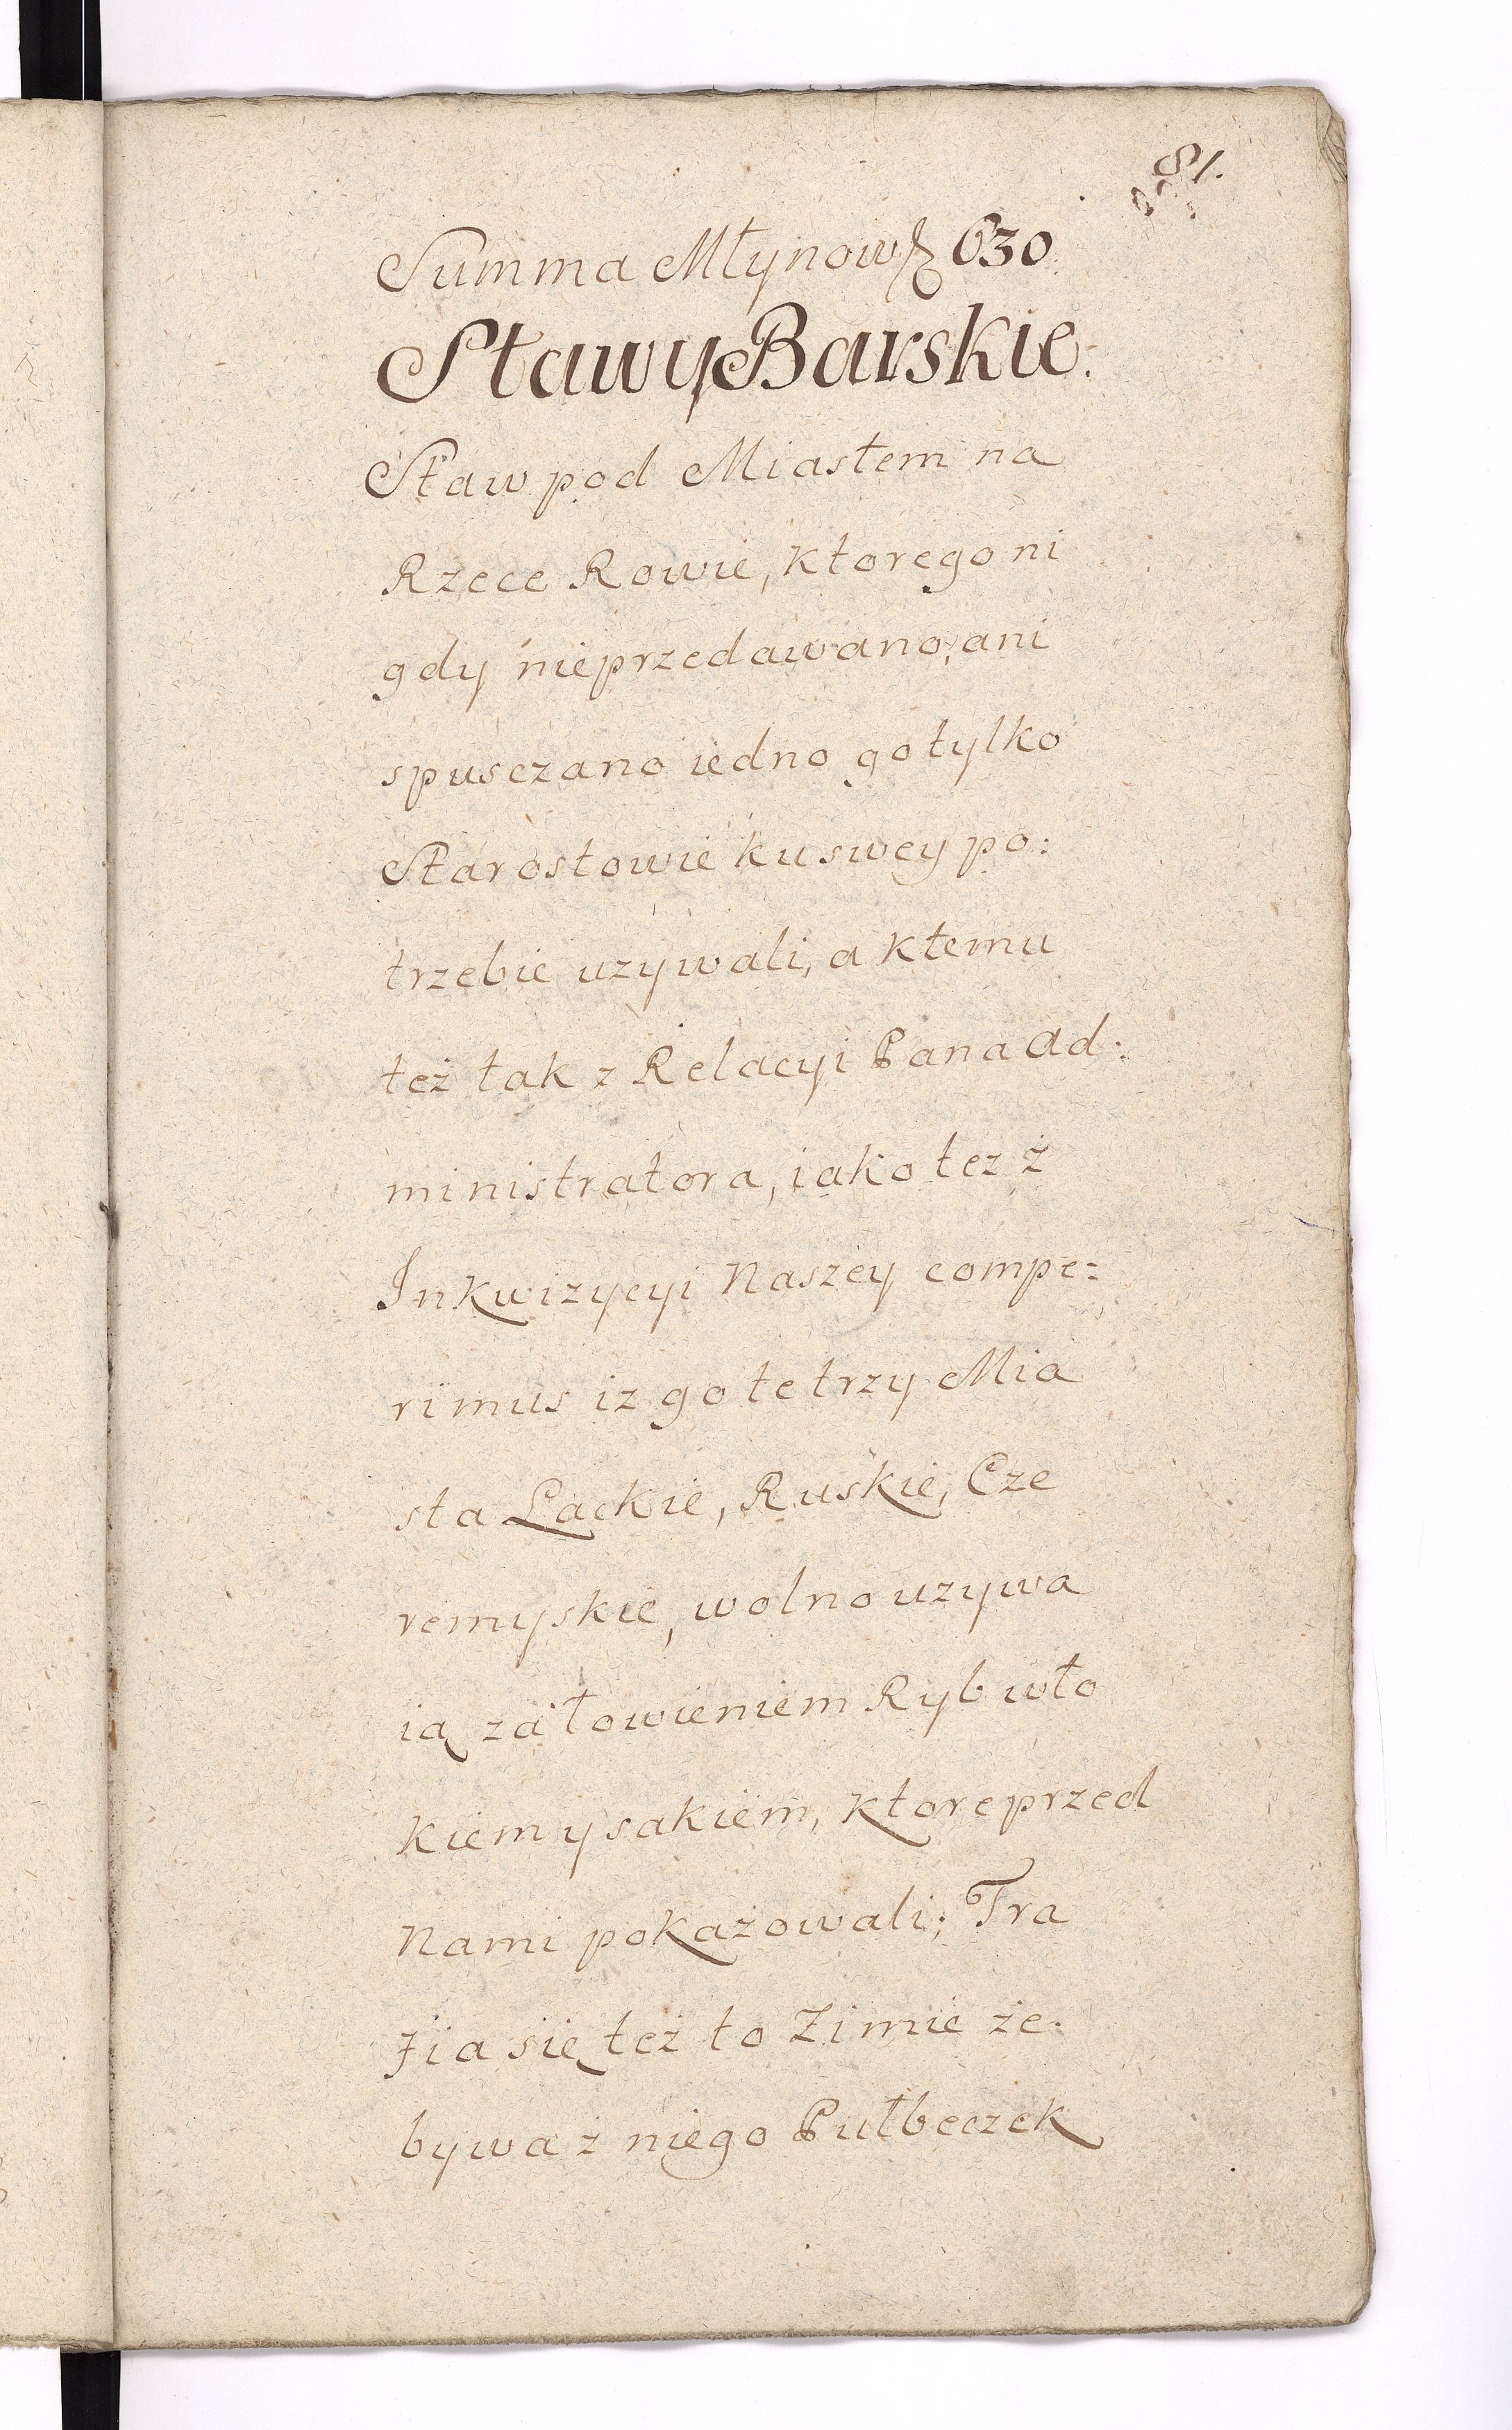 81.
Summa Młynow fl 630.
Stawy Barskie.
Staw pod Miastem na
Rzece Rowie, ktorego ni
gdy nieprzedawano, ani
spusczano iedno go tylko
Starostowie ku swey po:
trzebie uzywali, a ktemu
też tak z Relacyi Pana Ad:
ministratora, iako tez ż
Inkwizycyi Naszey compe:
rimus iz go te trzy Mia
sta Lackie, Ruskie, Cze
remyskie, wolno uzywa
ią za łowieniem Ryb wło
kiem y sakiem, ktore przed
Nami pokażowali; Tra
fia się też to Zimie że.
bywa z niego Pułbeczek